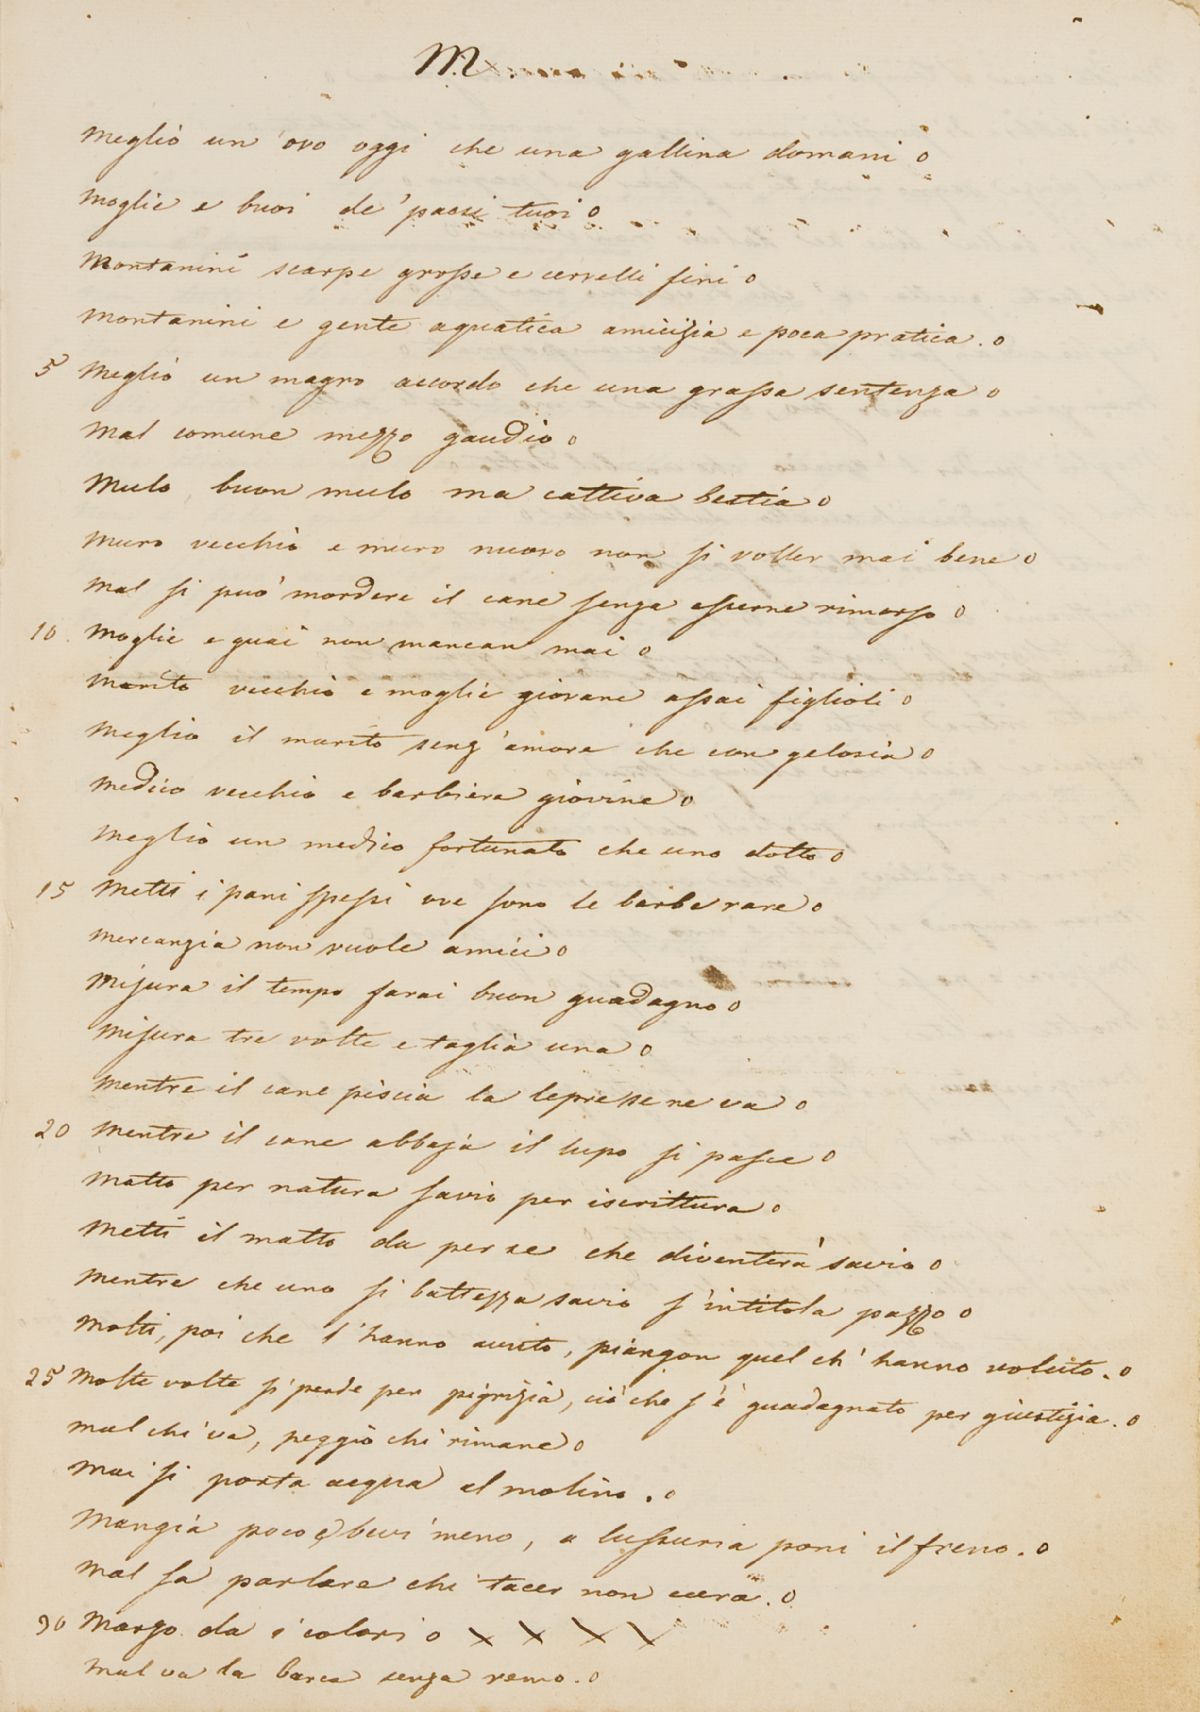 M.
Meglio un'ovo oggi che una gallina domani o
Moglie e buoi de' paesi tuoi o
Montanini scarpe grosse e cervelli fini o
Montanini e gente aquatica amicizia e poca pratica. o
5 Meglio un magro accordo che una grassa sentenza o
Mal comune mezzo gaudio o
Mulo, buon mulo ma cattiva bestia o
Muro vecchio e muro nuovo non si voller mai bene o
Mal si può mordere il cane senza esserne rimorso o
10 Moglie e guai non mancan mai o
Marito vecchio e moglie giovane assai figlioli o
Meglio il marito senz'amore che con gelosia o
Medico vecchio e barbiere giovine o
Meglio un medico fortunato che uno dotto o
15 Metti i pani spessi ove sono le barbe rare o
Mercanzia non vuole amici o
Misura il tempo farai buon guadagno o
Misura tre volte e taglia una o
Mentre il cane piscia la lepre se ne va o
20 Mentre il cane abbaja il lupo si pasce o
Matto per natura savio per iscrittura o
Metti il matto da per se che diventerà savio o
Mentre che uno si battezza savio s'intitola pazzo o
Molti, poi che l'hanno avuto, piangon quel ch'hanno voluto. o
25 Molte volte si perde per pigrizia, ciò che s'è guadagnato per giustizia. o
Mal chi va, peggio chi rimane o
Mai si porta acqua al molino. o
Mangia poco e bevi meno, a lussuria poni il freno. o
Mal sa parlare chi tacer non cura. o
30 Marzo da i colori o x x x x
Mal va la barca senza remo. o